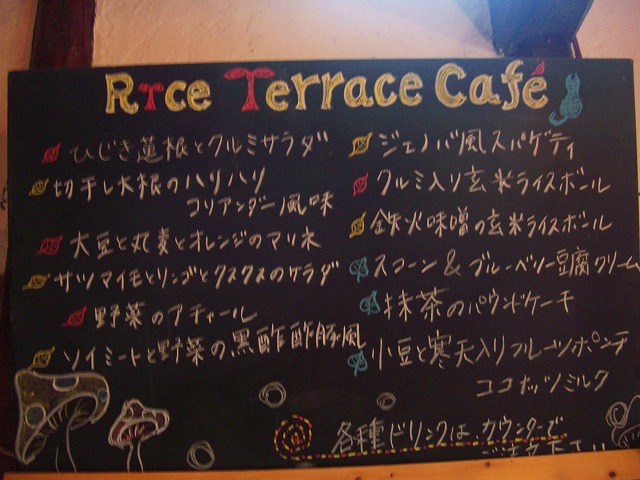 Rice Terrace Café
ひじき蓮根とクルミサラダ
切干し大根のハリハリ
コリアンダー風味
大豆と丸麦とオレンジのマリネ
サツマイモとリンゴとクスクスのサラダ
野菜のアチャール
ソイミートと野菜の黒酢酢豚風
ジェノバ風スパゲティ
クルミ入り玄米ライスボール
鉄火味噌の玄米ライスボール
スコーン & ブルーベリー豆腐クリーム
抹茶のパウンドケーキ
小豆と寒天入りフルーツポンチ
ココナッツミルク
各種ドリンクは、カウンターで
ご注文下さい